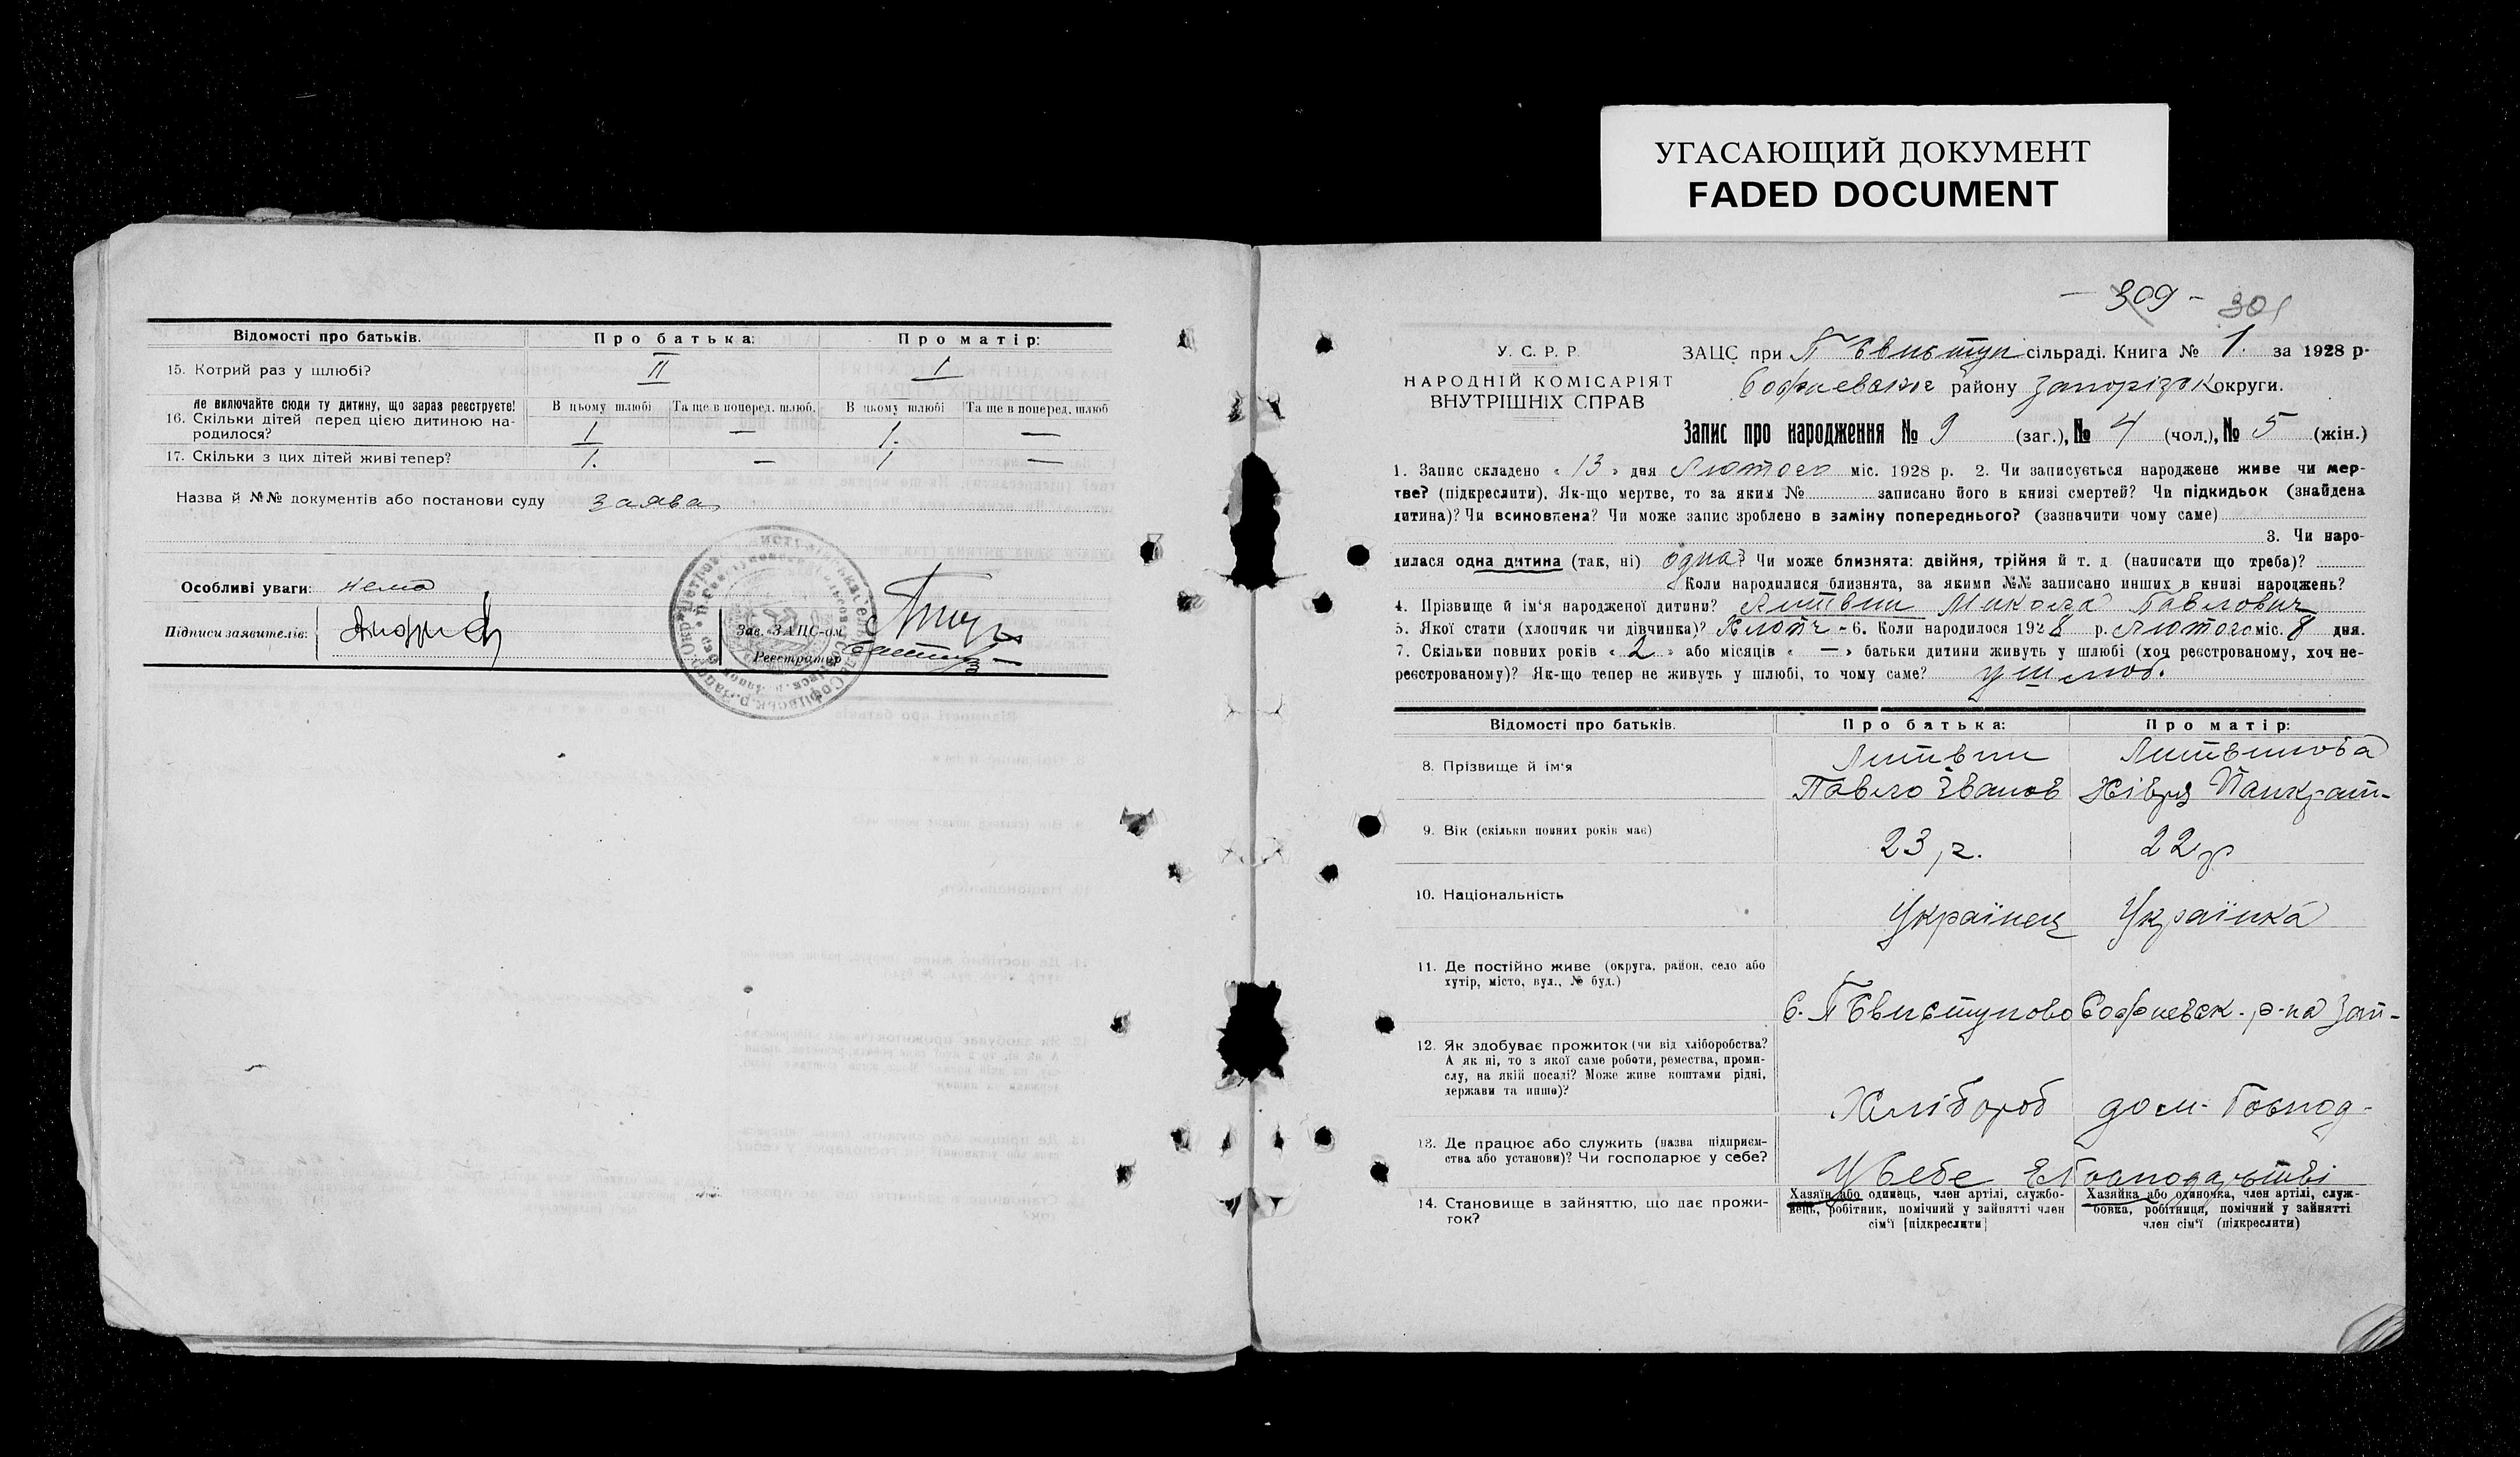 УГАСАЮЩИЙ ДОКУМЕНТ
FADED DOCUMENT
Відомості про батьків. Про батька: Про матір:
15. Котрий раз у шлюбі? II I
не включайте сюди ту дитину, що зараз реєструєте! В цьому шлюбі Та ще в поперед. шлюб. В цьому шлюбі Та ще в поперед. шлюб
16. Скільки дітей перед цією дитиною на-
родилося? 1 — 1. —
17. Скільки з цих дітей живі тепер? 1. — 1 —
Назва й №№ документів або постанови суду заява
Особливі уваги: нема
Підписи заявителів:
Зав. ЗАЦС-ом
Реєстратор
- 309 - 301
У. С. Р. Р.
НАРОДНІЙ КОМІСАРІЯТ
ВНУТРІШНІХ СПРАВ
ЗАЦС при П Свистун сільраді. Книга № 1. за 1928 р.
Софиевског району Запорізьк округи.
Запис про народження № 9 (заг.), № 4 (чол.), № 5 (жін.)
1. Запис складено « 13 » дня Лютого міс. 1928 р. 2. Чи записується народжене живе чи мер-
тве? (підкреслити). Як-що мертве, то за яким № записано його в книзі смертей? Чи підкидьок (знайдена
дитина)? Чи всиновлена? Чи може запис зроблено в заміну попереднього? (зазначити чому саме)
3. Чи наро-
дилася одна дитина (так, ні) одна? Чи може близнята: двійня, трійня й т. д. (написати що треба)?
Коли народилися близнята, за якими №№ записано инших в книзі народжень?
4. Прізвище й ім'я народженої дитини? Литвин Микола Павлович
5. Якої стати (хлопчик чи дівчинка)? Хлопч - 6. Коли народилося 1928 р. Лютого міс. 8 дня.
7. Скільки повних років « 2 » або місяців « — » батьки дитини живуть у шлюбі (хоч реєстрованому, хоч не-
реєстрованому)? Як-що тепер не живуть у шлюбі, то чому саме? у шлюб.
Відомості про батьків. Про батька: Про матір:
8. Прізвище й ім'я Литвин Литвинова
Павло Іванов Хівря Панкрат-
9. Вік (скільки повних років має) 23 р. 22 р
10. Національність Українец Українка
11. Де постійно живе (округа, район, село або
хутір, місто, вул., № буд.) С. П Свистуново Софиевск. р-на Зап-
12. Як здобуває прожиток (чи від хліборобства?
А як ні, то з якої саме роботи, ремества, проми-
слу, на якій посаді? Може живе коштами рідні,
держави та инше)? Хлібороб дом. Господ-
13. Де працює або служить (назва підприєм-
ства або установи)? Чи господарює у себе? У себе Господарстві
14. Становище в зайняттю, що дає прожи-
ток?
Хазяїн або одинець, член артілі, службо-
вець, робітник, помічний у зайнятті член
сім'ї [підкреслити]
Хазяйка або одиночка, член артілі, служ-
бовка, робітниця, помічний у зайнятті
член сім'ї (підкреслити)